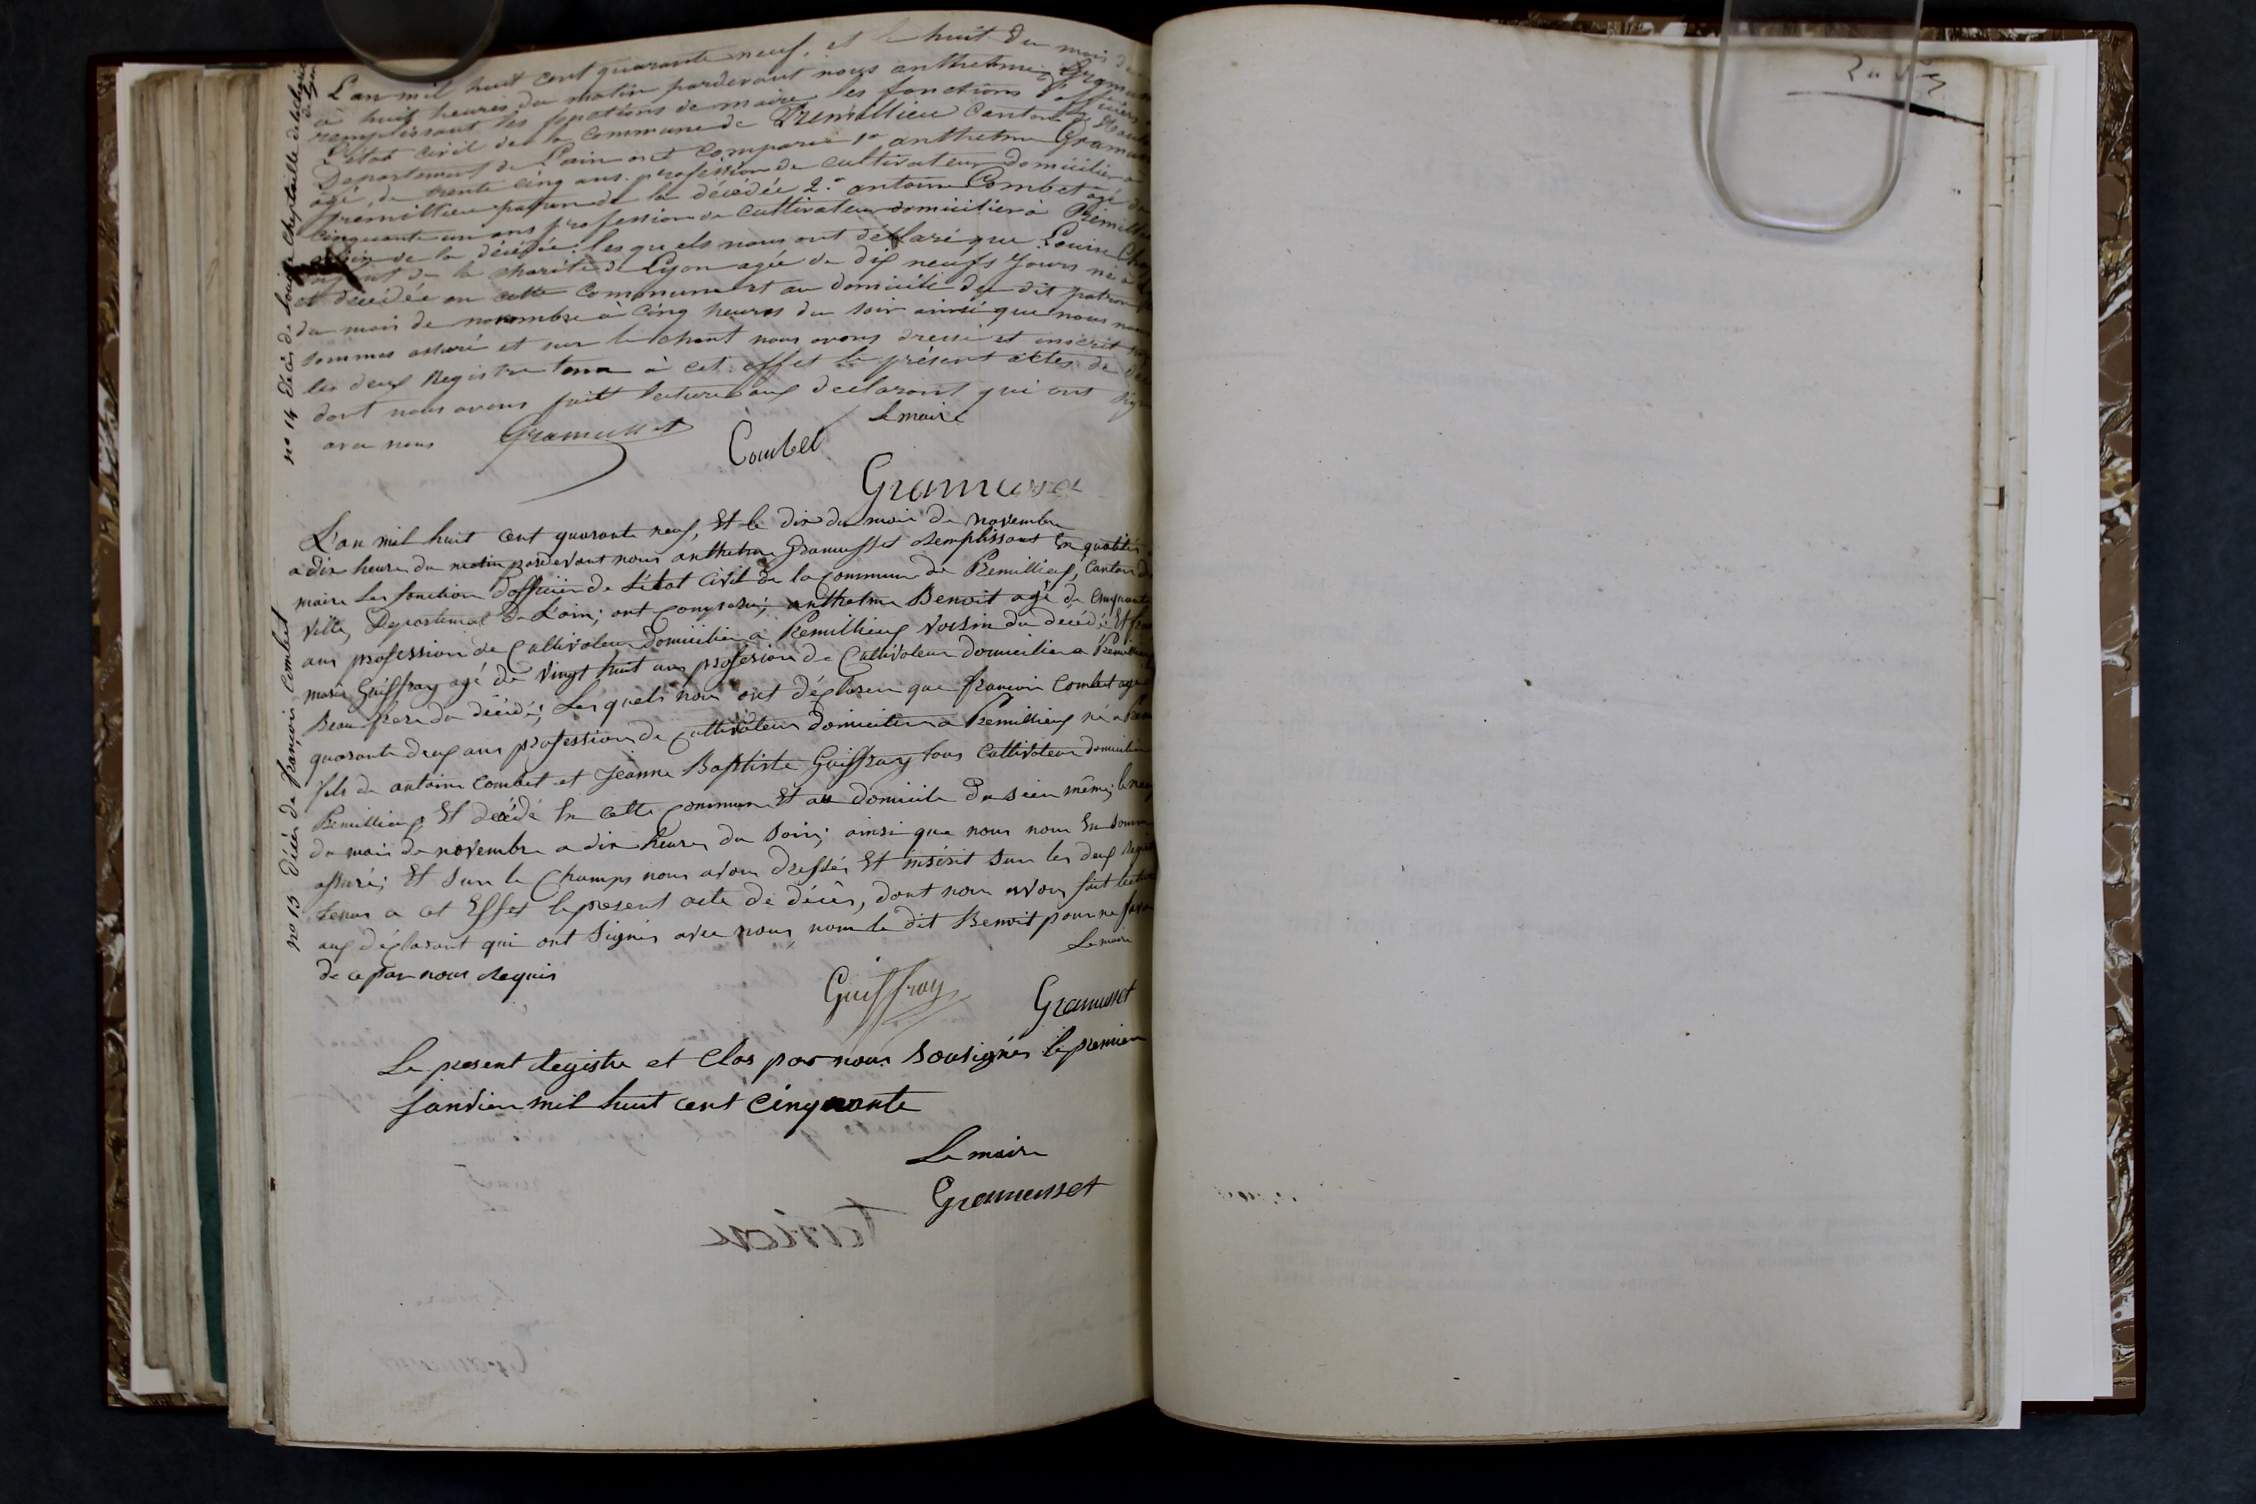 L'an mil huit cent quarante neuf, et le huit du mois de
à huit heures du matin pardevant nous anthelme Gramus
remplissant les fonctions de maire les fonctions d'officiers
L'état civil de la commune de Prémillieu Canton de haute
Departement de L'ain ont comparu 1° anthelme Gramus
âgé de trente cinq ans profession de cultivateur domicilier a
premillieu patron de la décédée 2° antoine Combet agé de
cinquante un ans profession de cultivateur domicilier à Prémilli
de la décédée lesquels nous ont déclaré que Louise Chep
de la charité de Lyon agée de dix neufs jours né a
et décédée en cette commune et au domicile du dit patron
du mois de novembre à cinq heures du soir ainsi que nous nous
sommes assuré et sur le champ nous avons dressé et inscrit sur
les deux Registre tenu à cet effet le présent actes de décè
dont nous avons fait lecture aux declarant qui ont sign
avec nous Gramusset
Le maire
Combet
Gramusset
no 14 Décès de Louise Cheptaille de la charité
de Lyon
L'an mil huit cent quarante neuf, Et le dix du mois de novembre
a dix heure du matin pardevant nous anthelme Gramusset Remplissant En qualités
maire Les fonction d'officier de L'état Civil de la commune de Premillieu, Canton d
ville, Departement De L'ain; ont comparu; anthelme Benoit agé de Cinquante
ans profession de Cultivateur domicilier a Premillieux voisin du décédé Et fran
marie Guiffray agé de vingt huit ans profesion de Cultivateur domicilier a Prémilli
Beau frere du décédé; Lesquels nous ont déclarer que françois Combet agé
quarante deux ans profession de Cultivateur domicilier a Premillieux né a Prem
fils de antoine Combet et Jeanne Baptiste Guiffray tous Cultivateur domicilier
Premillieux Et décédé En cette commune Et au domicile du sien même; le neuf
du mois de novembre a dix heures du soir; ainsi que nous nous En somm
assuré; Et Sur le Champs nous avons dressés Et inscrit Sur les deux Regis
tenus a cet Effet le present acte de décès, dont nous avons fait lectur
aux déclarant qui ont Signer avec nous, nom le dit Benoit pour ne savoi
de ce par nous Requis
Le maire
Guiffray
Gramusset
no 15 Décès de françois Combet
Le present Registre et Clos par nous Sousignés le premier
Janvier mil huit cent cinquante
Le maire
Gramusset